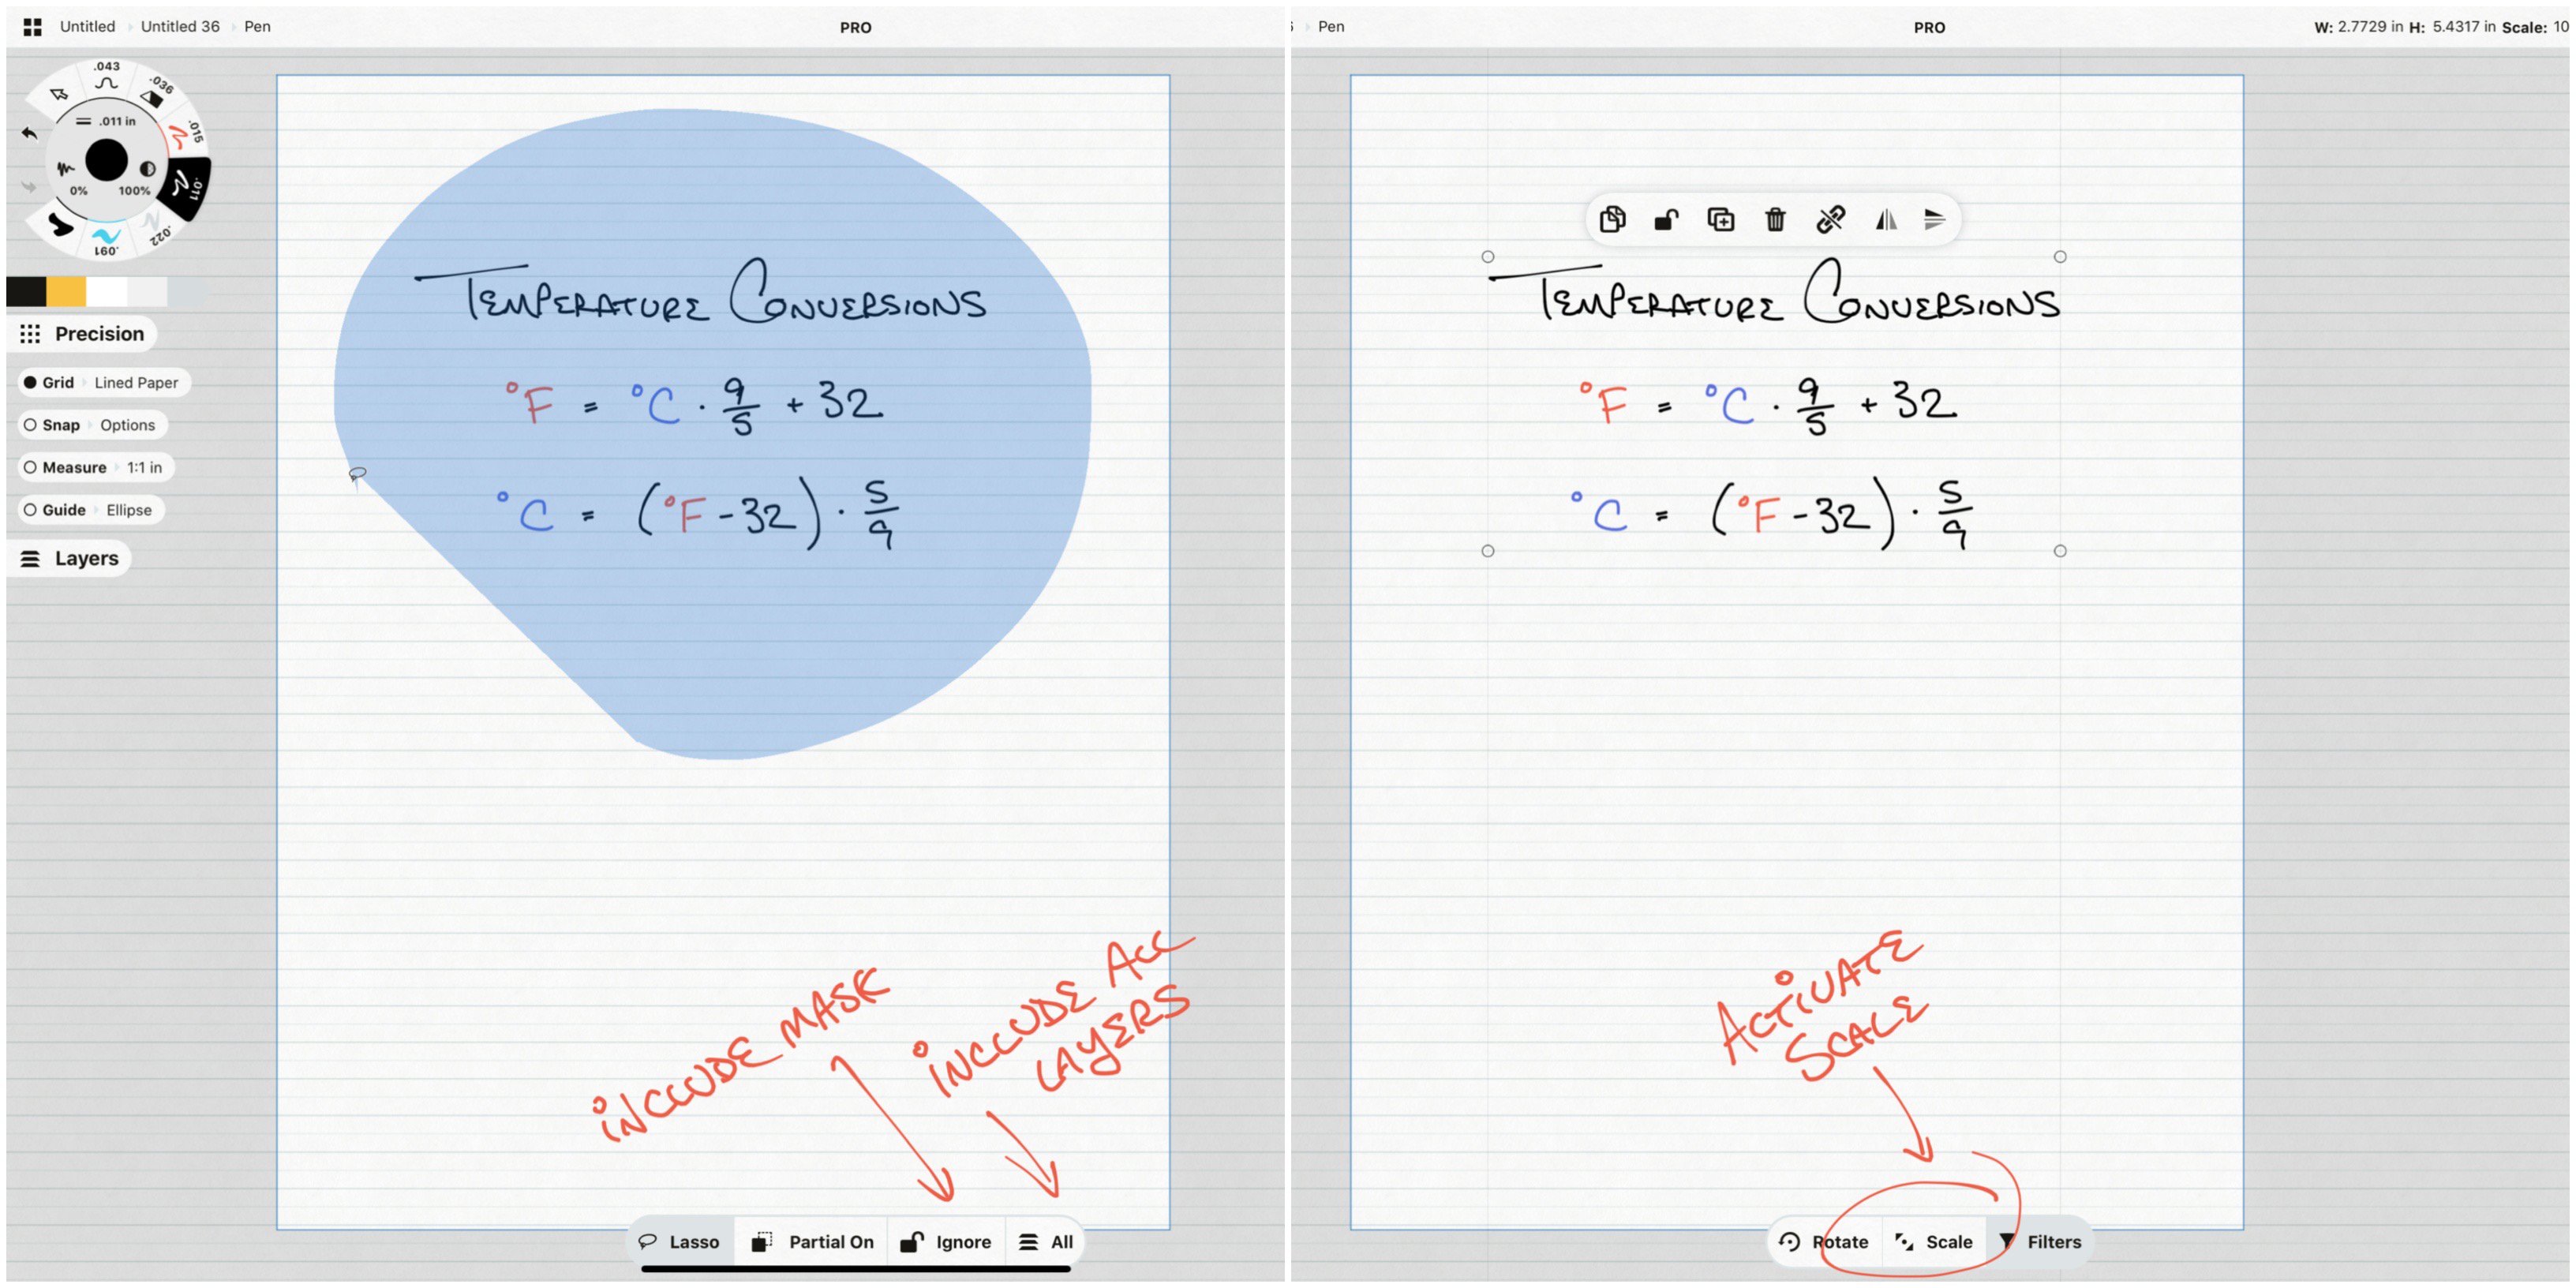 Untitled Untitled 36 Pen
PRO
.043
.036
.015
.011
.022
.091
.011 in
0% 100%
Precision
Grid Lined Paper
Snap Options
Measure 1:1 in
Guide Ellipse
Layers
TEMPERATURE CONVERSIONS
°F = °C · 9/5 + 32
°C = (°F - 32) · 5/9
iNCLUDE MASK
iNCLUDE ALL
LAYERS
Lasso Partial On Ignore All
Pen
PRO
W: 2.7729 in H: 5.4317 in Scale: 10
TEMPERATURE CONVERSIONS
°F = °C · 9/5 + 32
°C = (°F - 32) · 5/9
ACTiVATE
SCALE
Rotate Scale Filters